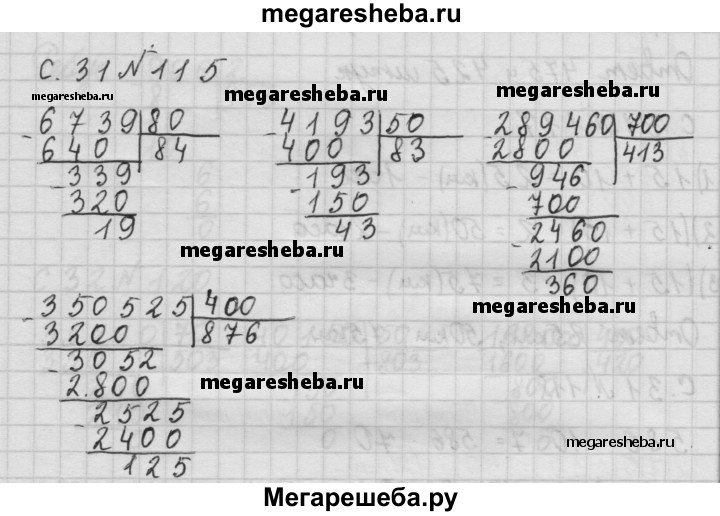 megaresheba.ru
с. 31 № 115
megaresheba.ru
megaresheba.ru
megaresheba.ru
- 6739 | 80
640 | 84
- 339
320
19
- 4193 | 50
400 | 83
- 193
150
43
- 289460 | 700
2800 | 413
- 946
700
- 2460
2100
360
megaresheba.ru
megaresheba.ru
- 350525 | 400
3200 | 876
- 3052
2.800
- 2525
2400
125
megaresheba.ru
megaresheba.ru
Мегарешеба.ру